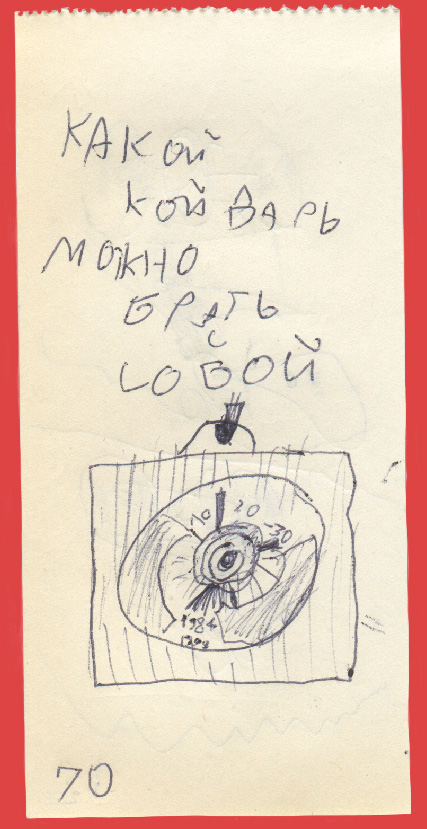 КАКОЙ
КОЙВАРЬ
МОЖНО
БРАТЬ
С
СОБОЙ
10 20 30
1984
70